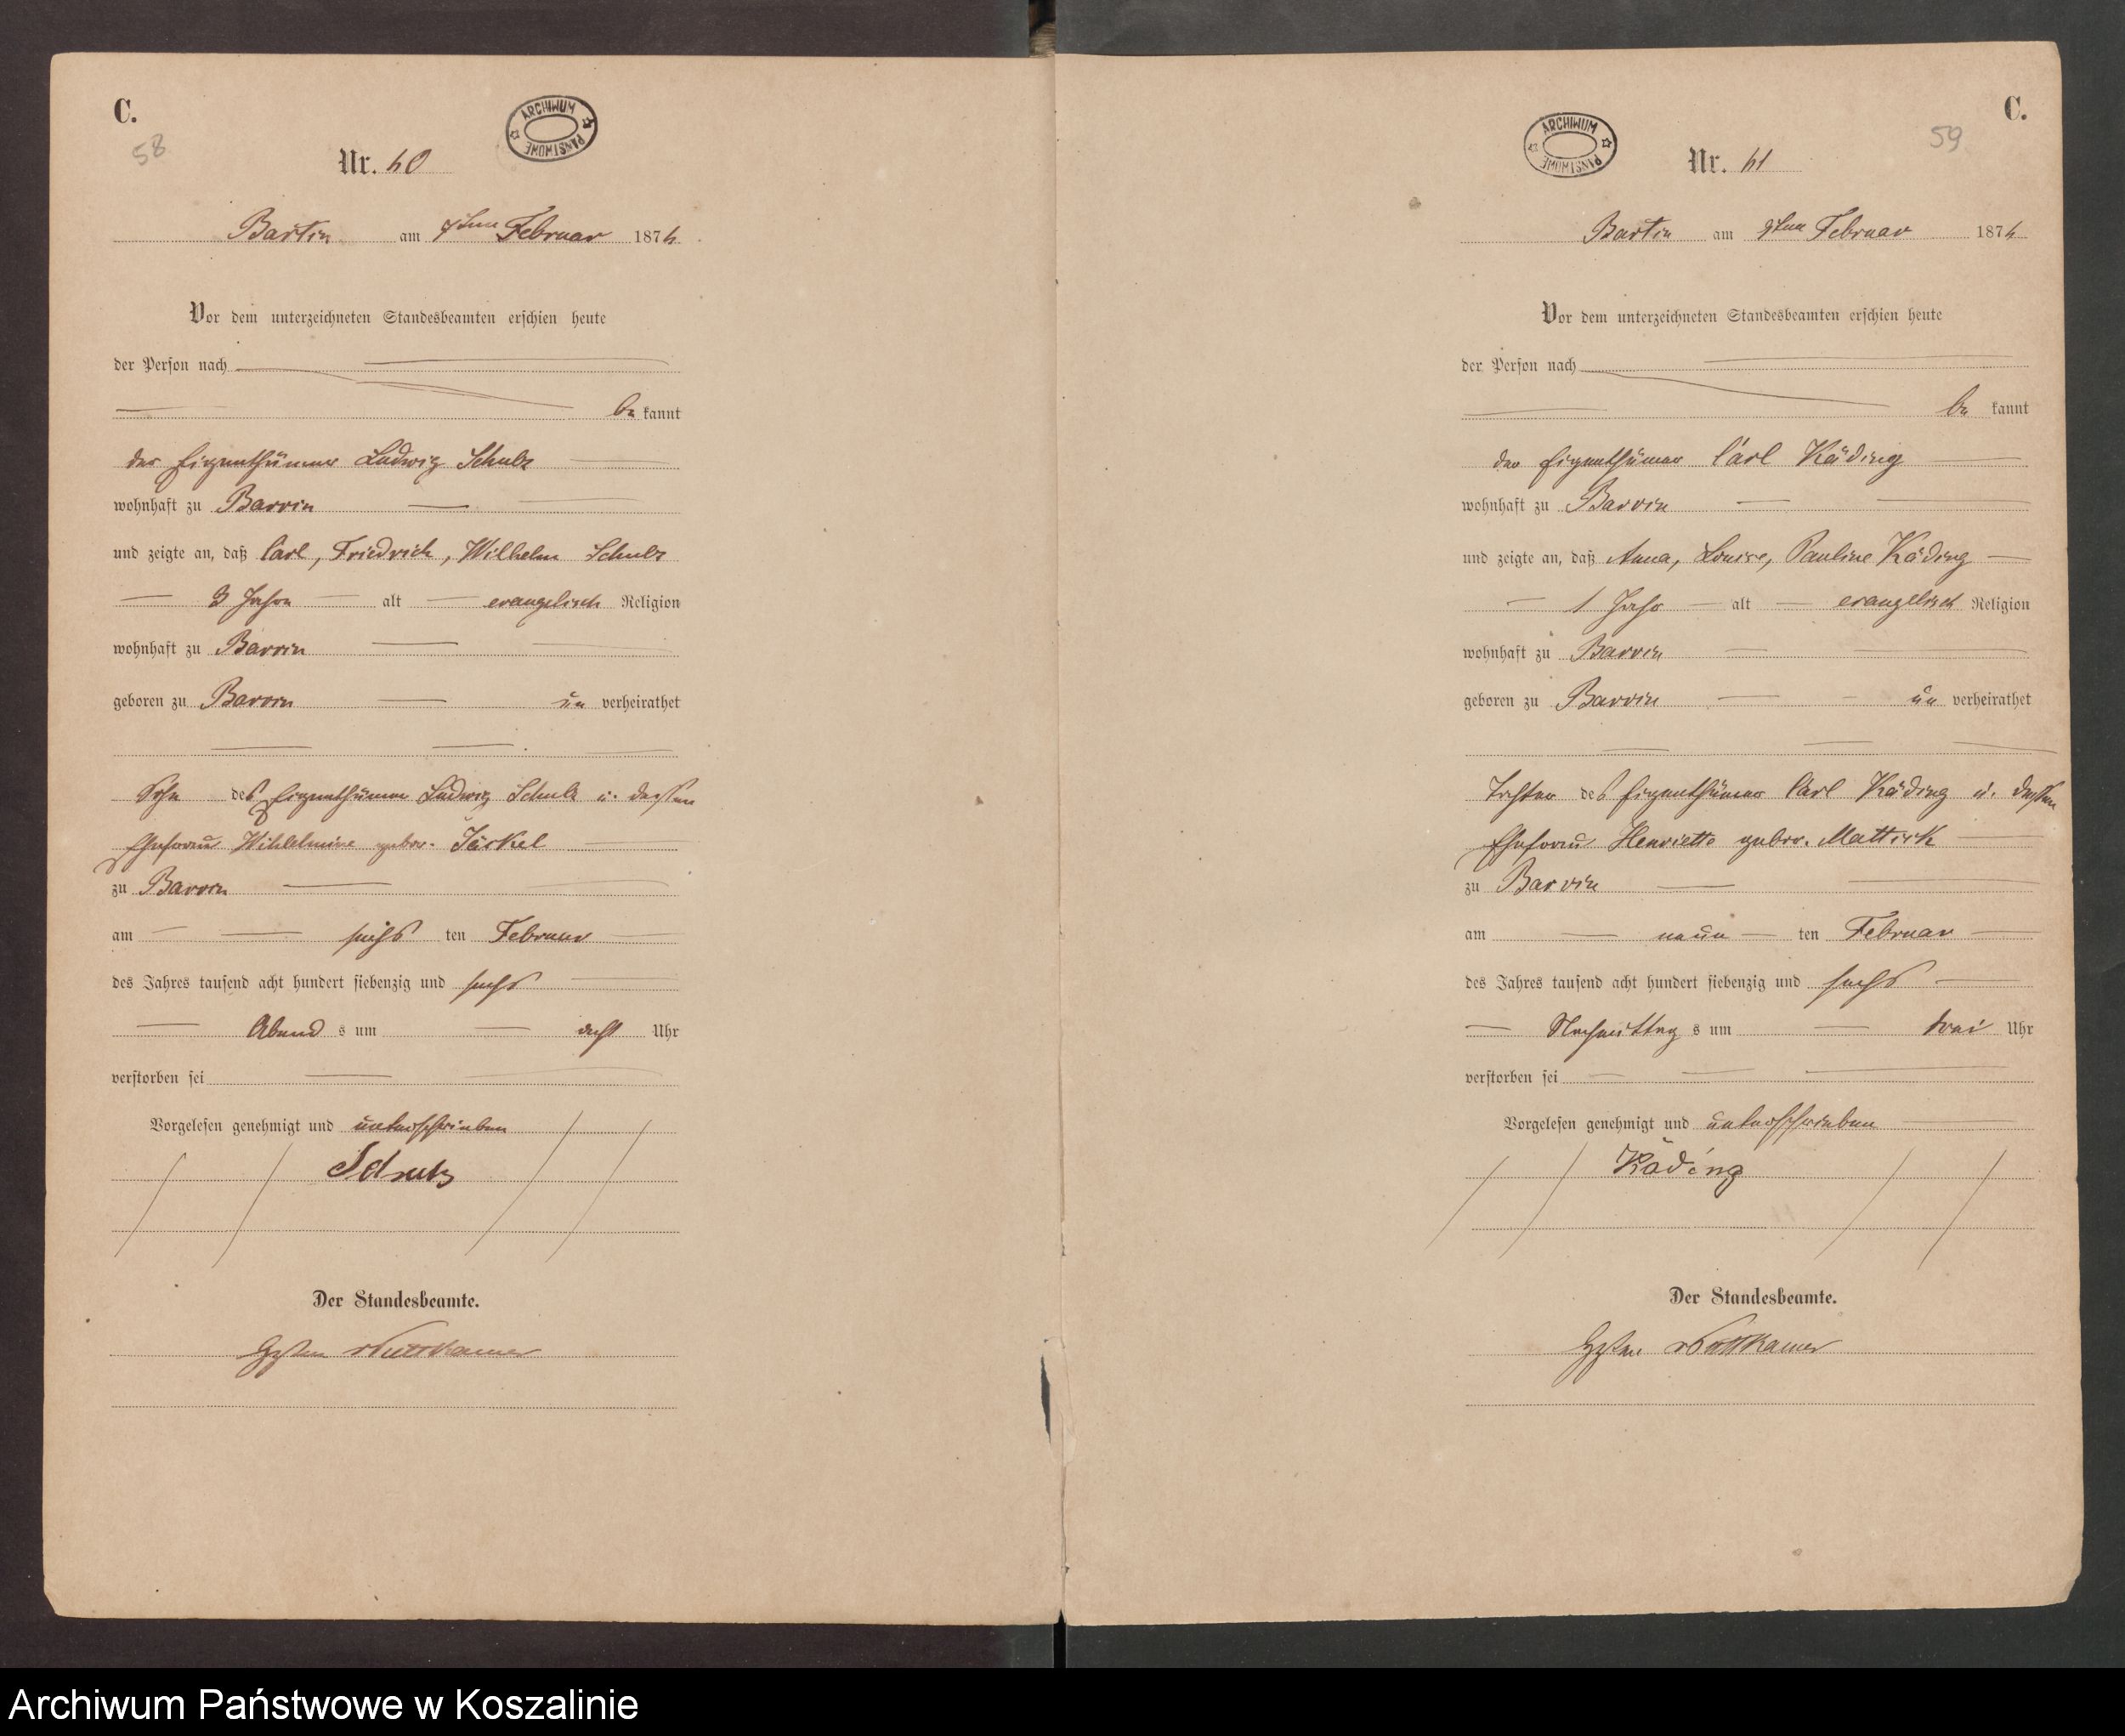 C.
58
ARCHIWUM PAŃSTWOWE
Nr. 60
Bartin am 7ten Februar 1876
Vor dem unterzeichneten Standesbeamten erschien heute
der Person nach
be kannt
der Eigenthümer Ludwig Schulz
wohnhaft zu Barvin
und zeigte an, daß Carl, Friedrich, Wilhelm Schulz
3 Jahre alt evangelisch Religion
wohnhaft zu Barvin
geboren zu Barvin un verheirathet
Sohn des Eigenthümer Ludwig Schulz u. dessen
Ehefrau Wihlelmine gebor. Jäckel
zu Barvin
am sechs ten Februar
des Jahres tausend acht hundert siebenzig und sechs
Abend s um acht Uhr
verstorben sei
Vorgelesen genehmigt und unterschrieben
Schulz
Der Standesbeamte.
Puttkamer
C.
59
ARCHIWUM PAŃSTWOWE
Nr. 61
Bartin am 9ten Februar 1876
Vor dem unterzeichneten Standesbeamten erschien heute
der Person nach
be kannt
der Eigenthümer Carl Käding
wohnhaft zu Barvin
und zeigte an, daß Anna, Louise, Pauline Käding
1 Jahr alt evangelisch Religion
wohnhaft zu Barvin
geboren zu Barvin un verheirathet
Tochter des Eigenthümer Carl Käding u. dessen
Ehefrau Henriette gebor. Mattick
zu Barvin
am neun ten Februar
des Jahres tausend acht hundert siebenzig und sechs
Nachmittag s um drei Uhr
verstorben sei
Vorgelesen genehmigt und unterschrieben
Käding
Der Standesbeamte.
Puttkamer
Archiwum Państwowe w Koszalinie